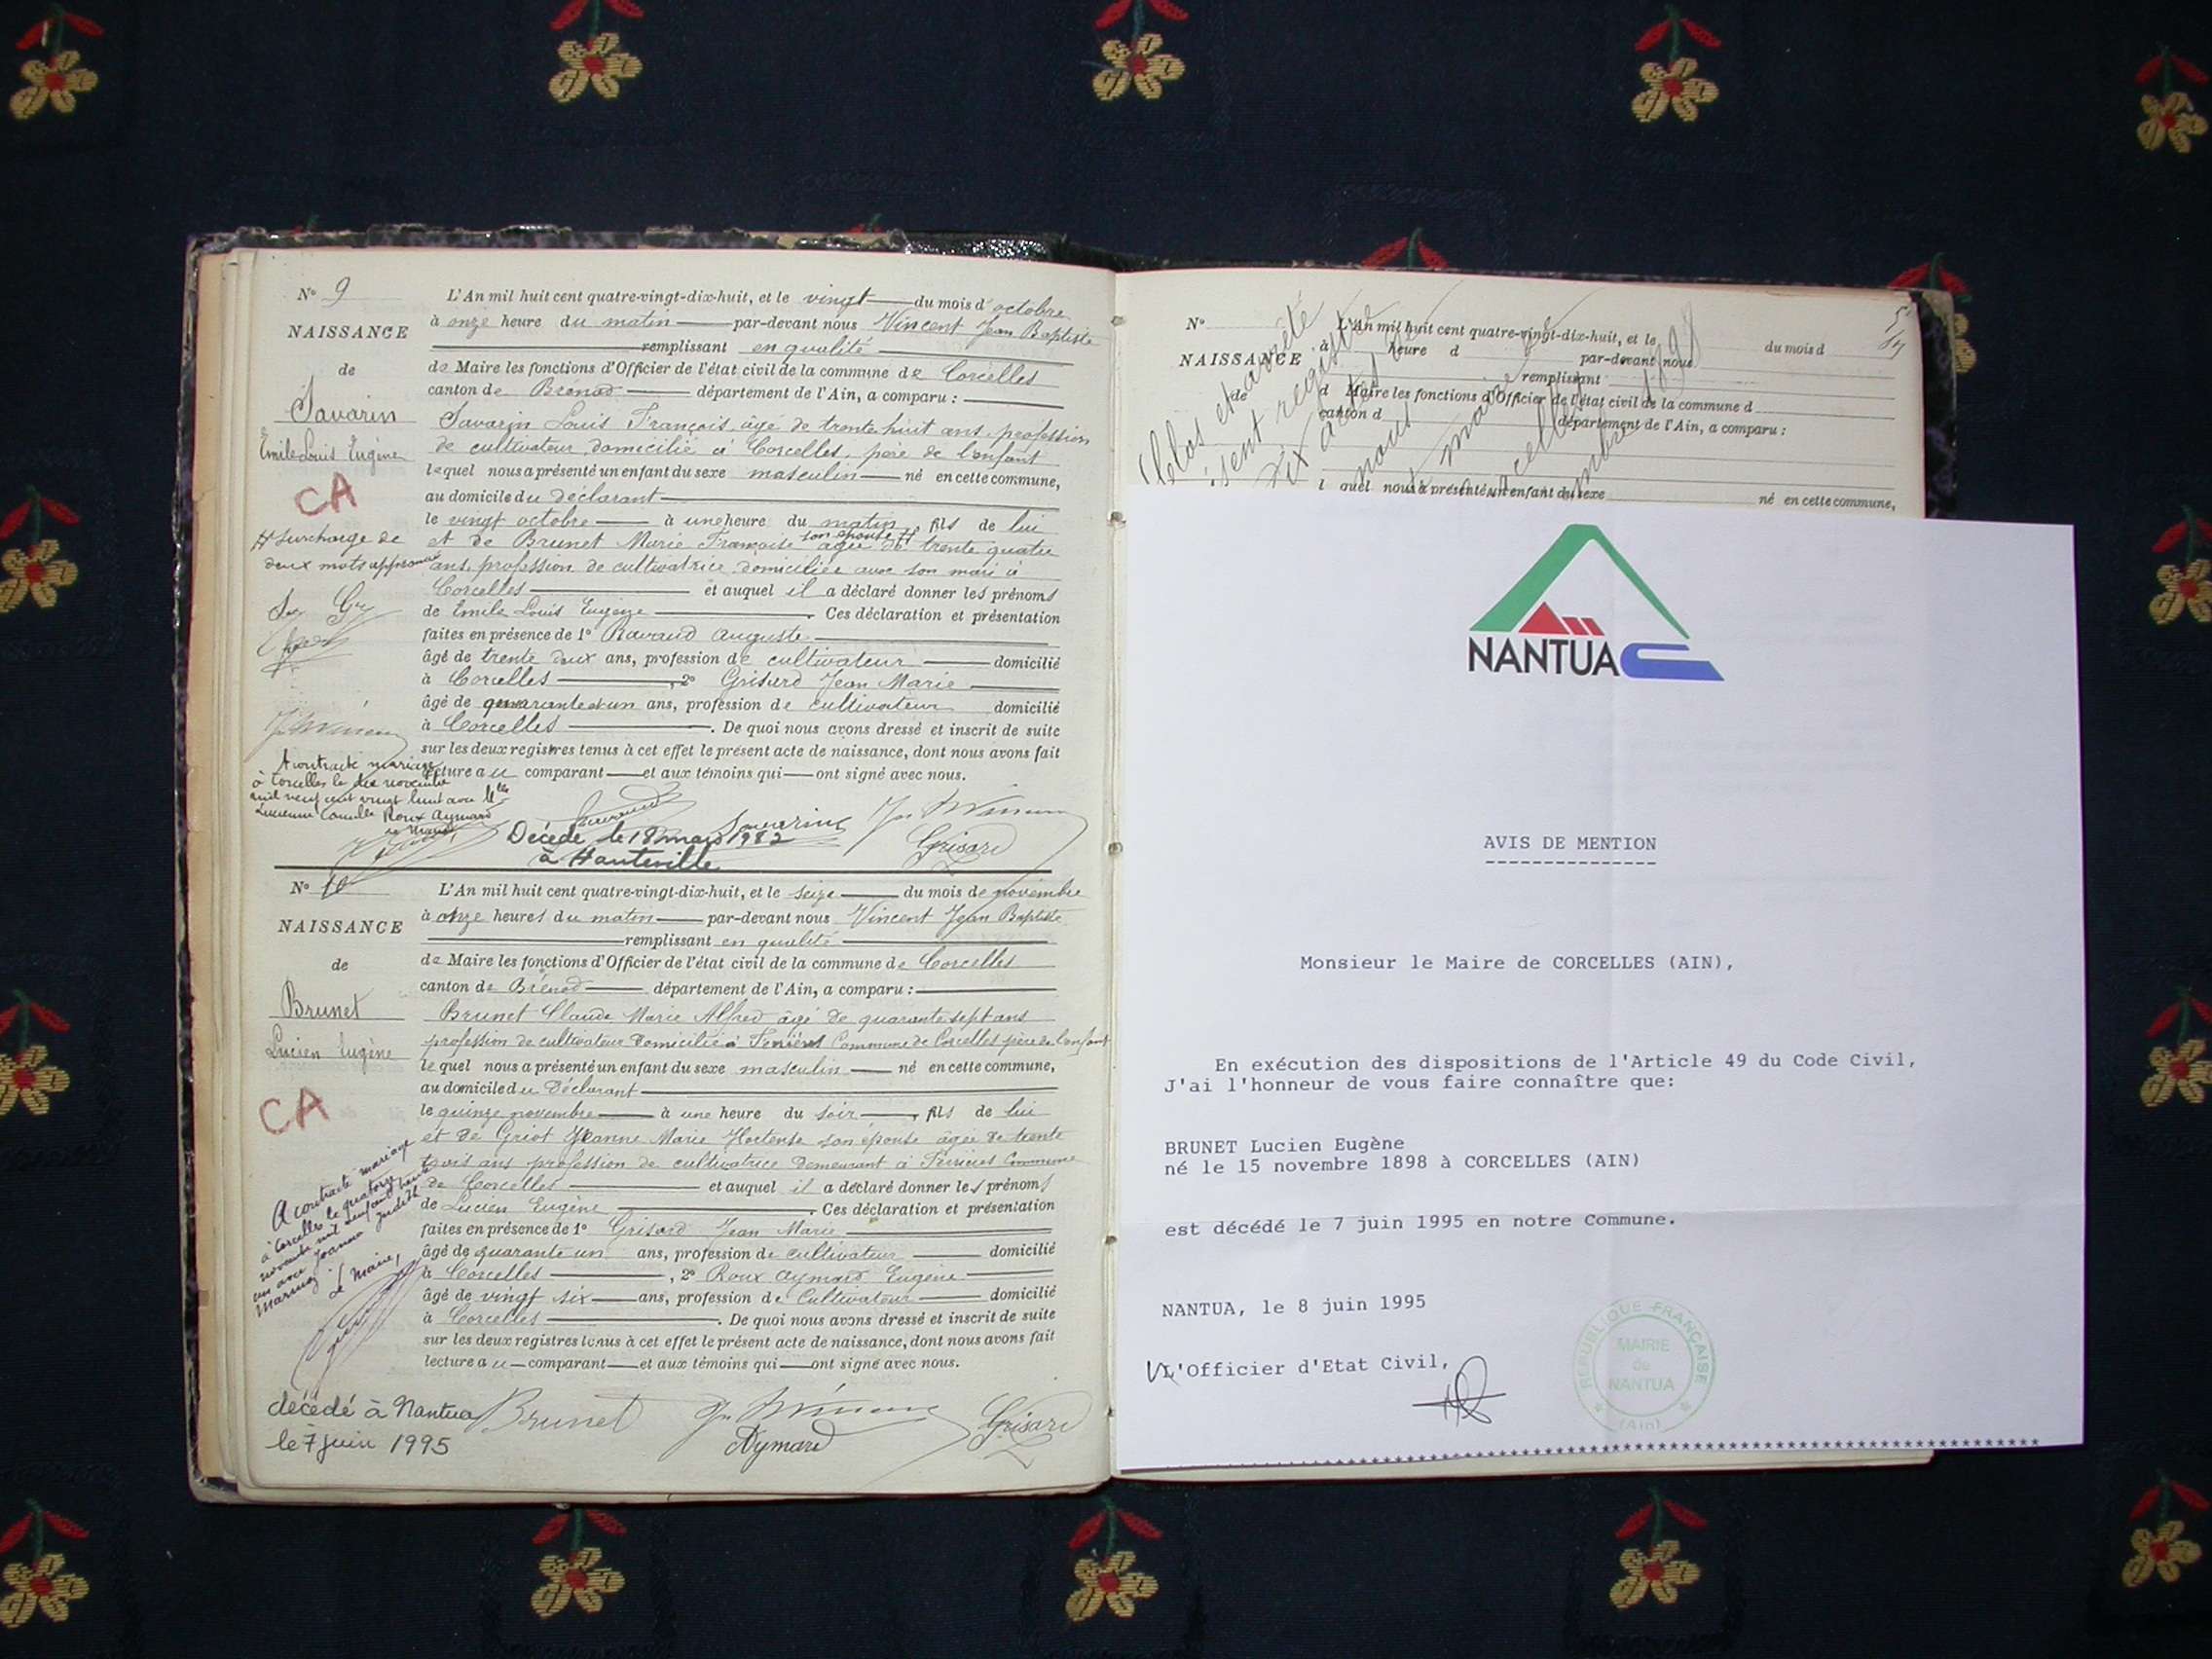 N° 9
L'An mil huit cent quatre-vingt-dix-huit, et le vingt du mois d'octobre
NAISSANCE
à onze heure du matin par-devant nous Vincent Jean Baptiste
remplissant en qualité
de
de Maire les fonctions d'Officier de l'état civil de la commune de Corcelles
canton de Brénod département de l'Ain, a comparu :
Savarin
Savarin Louis François, âgé de trente huit ans, profession
Emile Louis Eugène
de cultivateur, domicilié à Corcelles, père de l'enfant
lequel nous a présenté un enfant du sexe masculin né en cette commune,
CA
au domicile du déclarant
le vingt octobre à une heure du matin, fils de lui
# surcharge de
et de Brunet Marie Françoise son épouse # âgée de trente quatre
deux mots approuvée
ans, profession de cultivatrice domiciliée avec son mari à
Corcelles et auquel il a déclaré donner les prénoms
de Emile Louis Eugène Ces déclaration et présentation
faites en présence de 1° Ravaud Auguste
âgé de trente deux ans, profession de cultivateur domicilié
à Corcelles, 2° Grisard Jean Marie
âgé de quarante et un ans, profession de cultivateur domicilié
à Corcelles. De quoi nous avons dressé et inscrit de suite
sur les deux registres tenus à cet effet le présent acte de naissance, dont nous avons fait
lecture au comparant et aux témoins qui ont signé avec nous.
A contracté mariage
à Corcelles le dix novembre
mil neuf cent vingt huit avec Mlle
Lucienne Camille Roux Aymard
Savarin
Grisard
Décédé le 18 mars 1982
à Hauteville
N° 10
L'An mil huit cent quatre-vingt-dix-huit, et le seize du mois de novembre
NAISSANCE
à onze heures du matin par-devant nous Vincent Jean Baptiste
remplissant en qualité
de
de Maire les fonctions d'Officier de l'état civil de la commune de Corcelles
canton de Brénod département de l'Ain, a comparu :
Brunet
Brunet Claude Marie Alfred âgé de quarante sept ans
Lucien Eugène
profession de cultivateur domicilié à Commune de Corcelles père de l'enfant
lequel nous a présenté un enfant du sexe masculin né en cette commune,
au domicile du Déclarant
CA
le quinze novembre à une heure du soir, fils de lui
et de Griot Jeanne Marie Hortense son épouse âgée de trente
trois ans profession de cultivatrice demeurant à Commune
de Corcelles et auquel il a déclaré donner les prénoms
de Lucien Eugène. Ces déclaration et présentation
faites en présence de 1° Grisard Jean Marie
âgé de quarante un ans, profession de cultivateur domicilié
à Corcelles, 2° Roux Aymard Eugène
âgé de vingt six ans, profession de Cultivateur domicilié
à Corcelles. De quoi nous avons dressé et inscrit de suite
sur les deux registres tenus à cet effet le présent acte de naissance, dont nous avons fait
lecture au comparant et aux témoins qui ont signé avec nous.
A contracté mariage
à Corcelles le quatorze
Le Maire,
décédé à Nantua
le 7 juin 1995
Brunet
Aymard
Grisard
N°
L'An mil huit cent quatre-vingt-dix-huit, et le du mois d
NAISSANCE
à heure d par-devant nous
remplissant
de
d Maire les fonctions d'Officier de l'état civil de la commune d
canton d département de l'Ain, a comparu :
l quel nous a présenté un enfant du sexe né en cette commune,
Clos et arrêté
registre
dix actes
nous maire
1898
NANTUA
AVIS DE MENTION
---------------
Monsieur le Maire de CORCELLES (AIN),
En exécution des dispositions de l'Article 49 du Code Civil,
J'ai l'honneur de vous faire connaître que:
BRUNET Lucien Eugène
né le 15 novembre 1898 à CORCELLES (AIN)
est décédé le 7 juin 1995 en notre Commune.
NANTUA, le 8 juin 1995
L'Officier d'Etat Civil,
REPUBLIQUE FRANÇAISE
MAIRIE
de
NANTUA
(Ain)